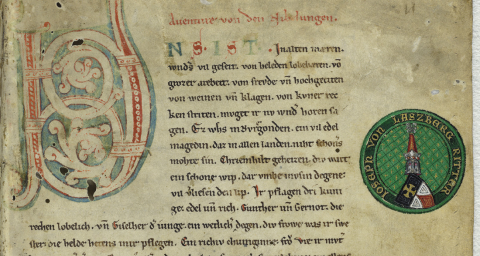 Auenture von den Nibelungen.
NS. IST. In alten mæren.
wunds vil geseit. von heleden lobebæren. vō
grozer arebeit. von frevde vn̄ hochgeciten
von weinen vn̄ klagen. von kvner rec
ken striten. mvget ir nv wnd horen sa
gen. Ez whs in Bvrgonden. ein vil edel
magedin. daz in allen landen. niht schoners
mohte sin. Chriemhilt geheizen. div wart
ein schone wip. dar vmbe mvsin degene
vil vliesen den lip. Ir pflagen dri kuni
ge. edel vn̄ rich. Gunther vn̄ Gernot. die
rechen lobelich. vn̄ Giselher d iunge. ein wetlich degen. div frowe was ir swe
ster. die helde hetens inir pflegen. Ein richiv chuniginne. frō
JOSEPH VON LASZBERG RITTER